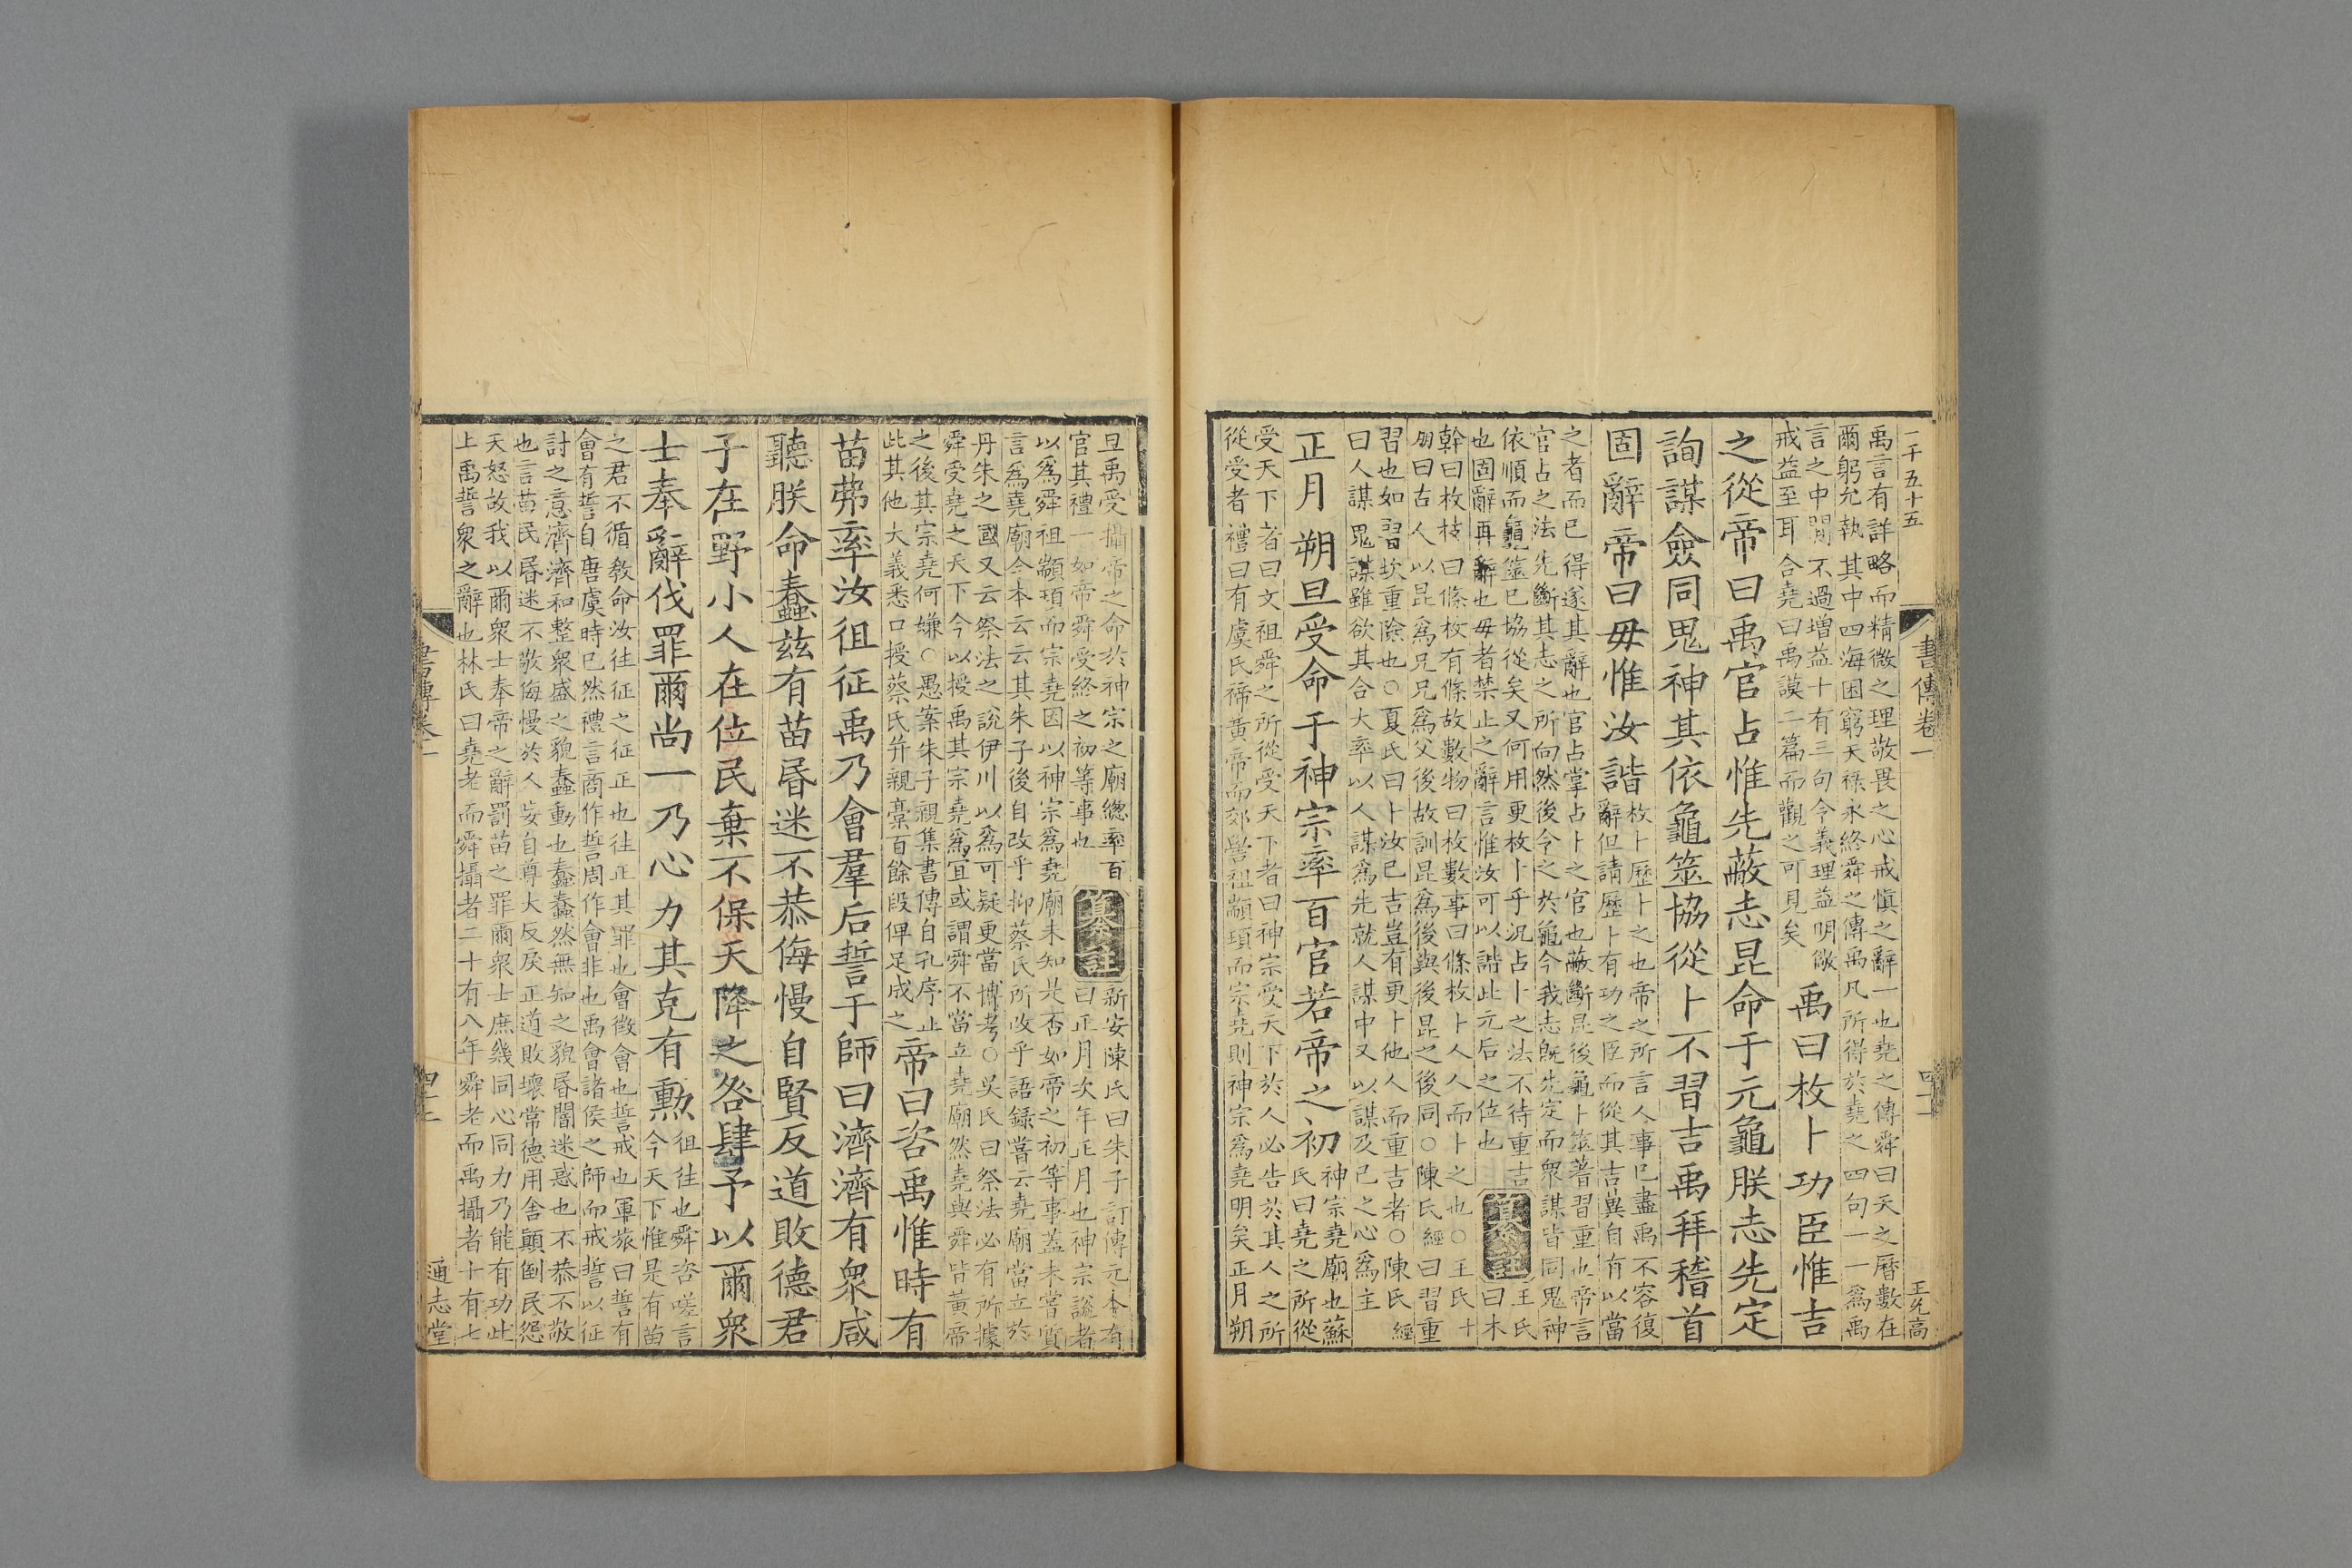 一千五十五
書傳卷一
四十二
王允高
禹言有詳略而精微之理敬畏之心戒愼之辭一也堯之傳舜曰天之曆數在
爾躬允執其中四海困窮天祿永終舜之傳禹凡所得於堯之四句一一爲禹
言之中間不過增益十有三句令義理益明儆
戒益至耳合堯曰禹謨二篇而觀之可見矣
禹曰枚卜功臣惟吉
之從帝曰禹官占惟先蔽志昆命于元龜朕志先定
詢謀僉同鬼神其依龜筮協從卜不習吉禹拜稽首
固辭帝曰毋惟汝諧
枚卜歷卜之也帝之所言人事已盡禹不容復
辭但請歷卜有功之臣而從其吉冀自有以當
之者而已得遂其辭也官占掌占卜之官也蔽斷昆後龜卜筮蓍習重也帝言
官占之法先斷其志之所向然後令之於龜今我志旣先定而衆謀皆同鬼神
依順而龜筮已協從矣又何用更枚卜乎況占卜之法不待重吉
也固辭再辭也毋者禁止之辭言惟汝可以諧此元后之位也
纂註
王氏
曰木
幹曰枚枝曰條枚有條故數物曰枚數事曰條枚卜人人而卜之也○王氏十
朋曰古人以昆爲兄兄爲父後故訓昆爲後與後昆之後同○陳氏經曰習重
習也如習坎重險也○夏氏曰卜汝已吉豈有更卜他人而重吉者○陳氏經
曰人謀鬼謀雖欲其合大率以人謀爲先就人謀中又以謀及己之心爲主
正月朔旦受命于神宗率百官若帝之初
神宗堯廟也蘇
氏曰堯之所從
受天下者曰文祖舜之所從受天下者曰神宗受天下於人必告於其人之所
從受者禮曰有虞氏禘黃帝而郊嚳祖顓頊而宗堯則神宗爲堯明矣正月朔
旦禹受攝帝之命於神宗之廟總率百
官其禮一如帝舜受終之初等事也
纂註
新安陳氏曰朱子訂傳元本有
曰正月次年正月也神宗說者
以爲舜祖顓頊而宗堯因以神宗爲堯廟未知是否如帝之初等事蓋未嘗質
言爲堯廟今本云云其朱子後自改乎抑蔡氏所改乎語錄嘗云堯廟當立於
丹朱之國又云祭法之說伊川以爲可疑更當博考○吳氏曰祭法必有所據
舜受堯之天下今以授禹其宗堯爲宜或謂舜不當立堯廟然堯與舜皆黃帝
之後其宗堯何嫌○愚案朱子親集書傳自孔序止
此其他大義悉口授蔡氏幷親稾百餘段俾足成之
帝曰咨禹惟時有
苗弗率汝徂征禹乃會羣后誓于師曰濟濟有衆咸
聽朕命蠢玆有苗昏迷不恭侮慢自賢反道敗德君
子在野小人在位民棄不保天降之咎肆予以爾衆
士奉辭伐罪爾尚一乃心力其克有勳
徂往也舜咨嗟言
今天下惟是有苗
之君不循敎命汝往征之征正也往正其罪也會徵會也誓戒也軍旅曰誓有
會有誓自唐虞時已然禮言商作誓周作會非也禹會諸侯之師而戒誓以征
討之意濟濟和整衆盛之貌蠢動也蠢蠢然無知之貌昏闇迷惑也不恭不敬
也言苗民昏迷不敬侮慢於人妄自尊大反戾正道敗壞常德用舍顚倒民怨
天怒故我以爾衆士奉帝之辭罰苗之罪爾衆士庶幾同心同力乃能有功此
上禹誓衆之辭也林氏曰堯老而舜攝者二十有八年舜老而禹攝者十有七
書傳卷一
四十二
通志堂